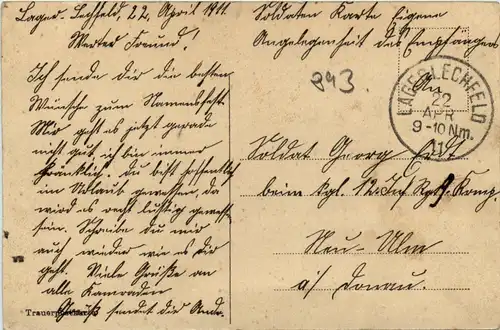 Lager-Lechfeld, 22, April 1911.
Werter Freund!
Ich sende dir die besten
Wünsche zum Namensfest.
Mir geht es jetzt gerade
nicht gut, ich bin immer
kränklich. du bist hoffentlich
im Urlaub gewesen, da
wird es recht lustig gewest
sein. Schreibe du mir
auch wieder wie es dir
geht. Viele Grüße an
alle Kameraden
Gruß sendet dir
Soldaten Karte Eigene
Angelegenheit des Empfängers
893.
An
LAGER LECHFELD
22
APR
9-10 Nm.
11
Soldat Georg
beim Kgl. 12. Inf. Rgt. 9. Komp.
Neu-Ulm
a/ Donau.